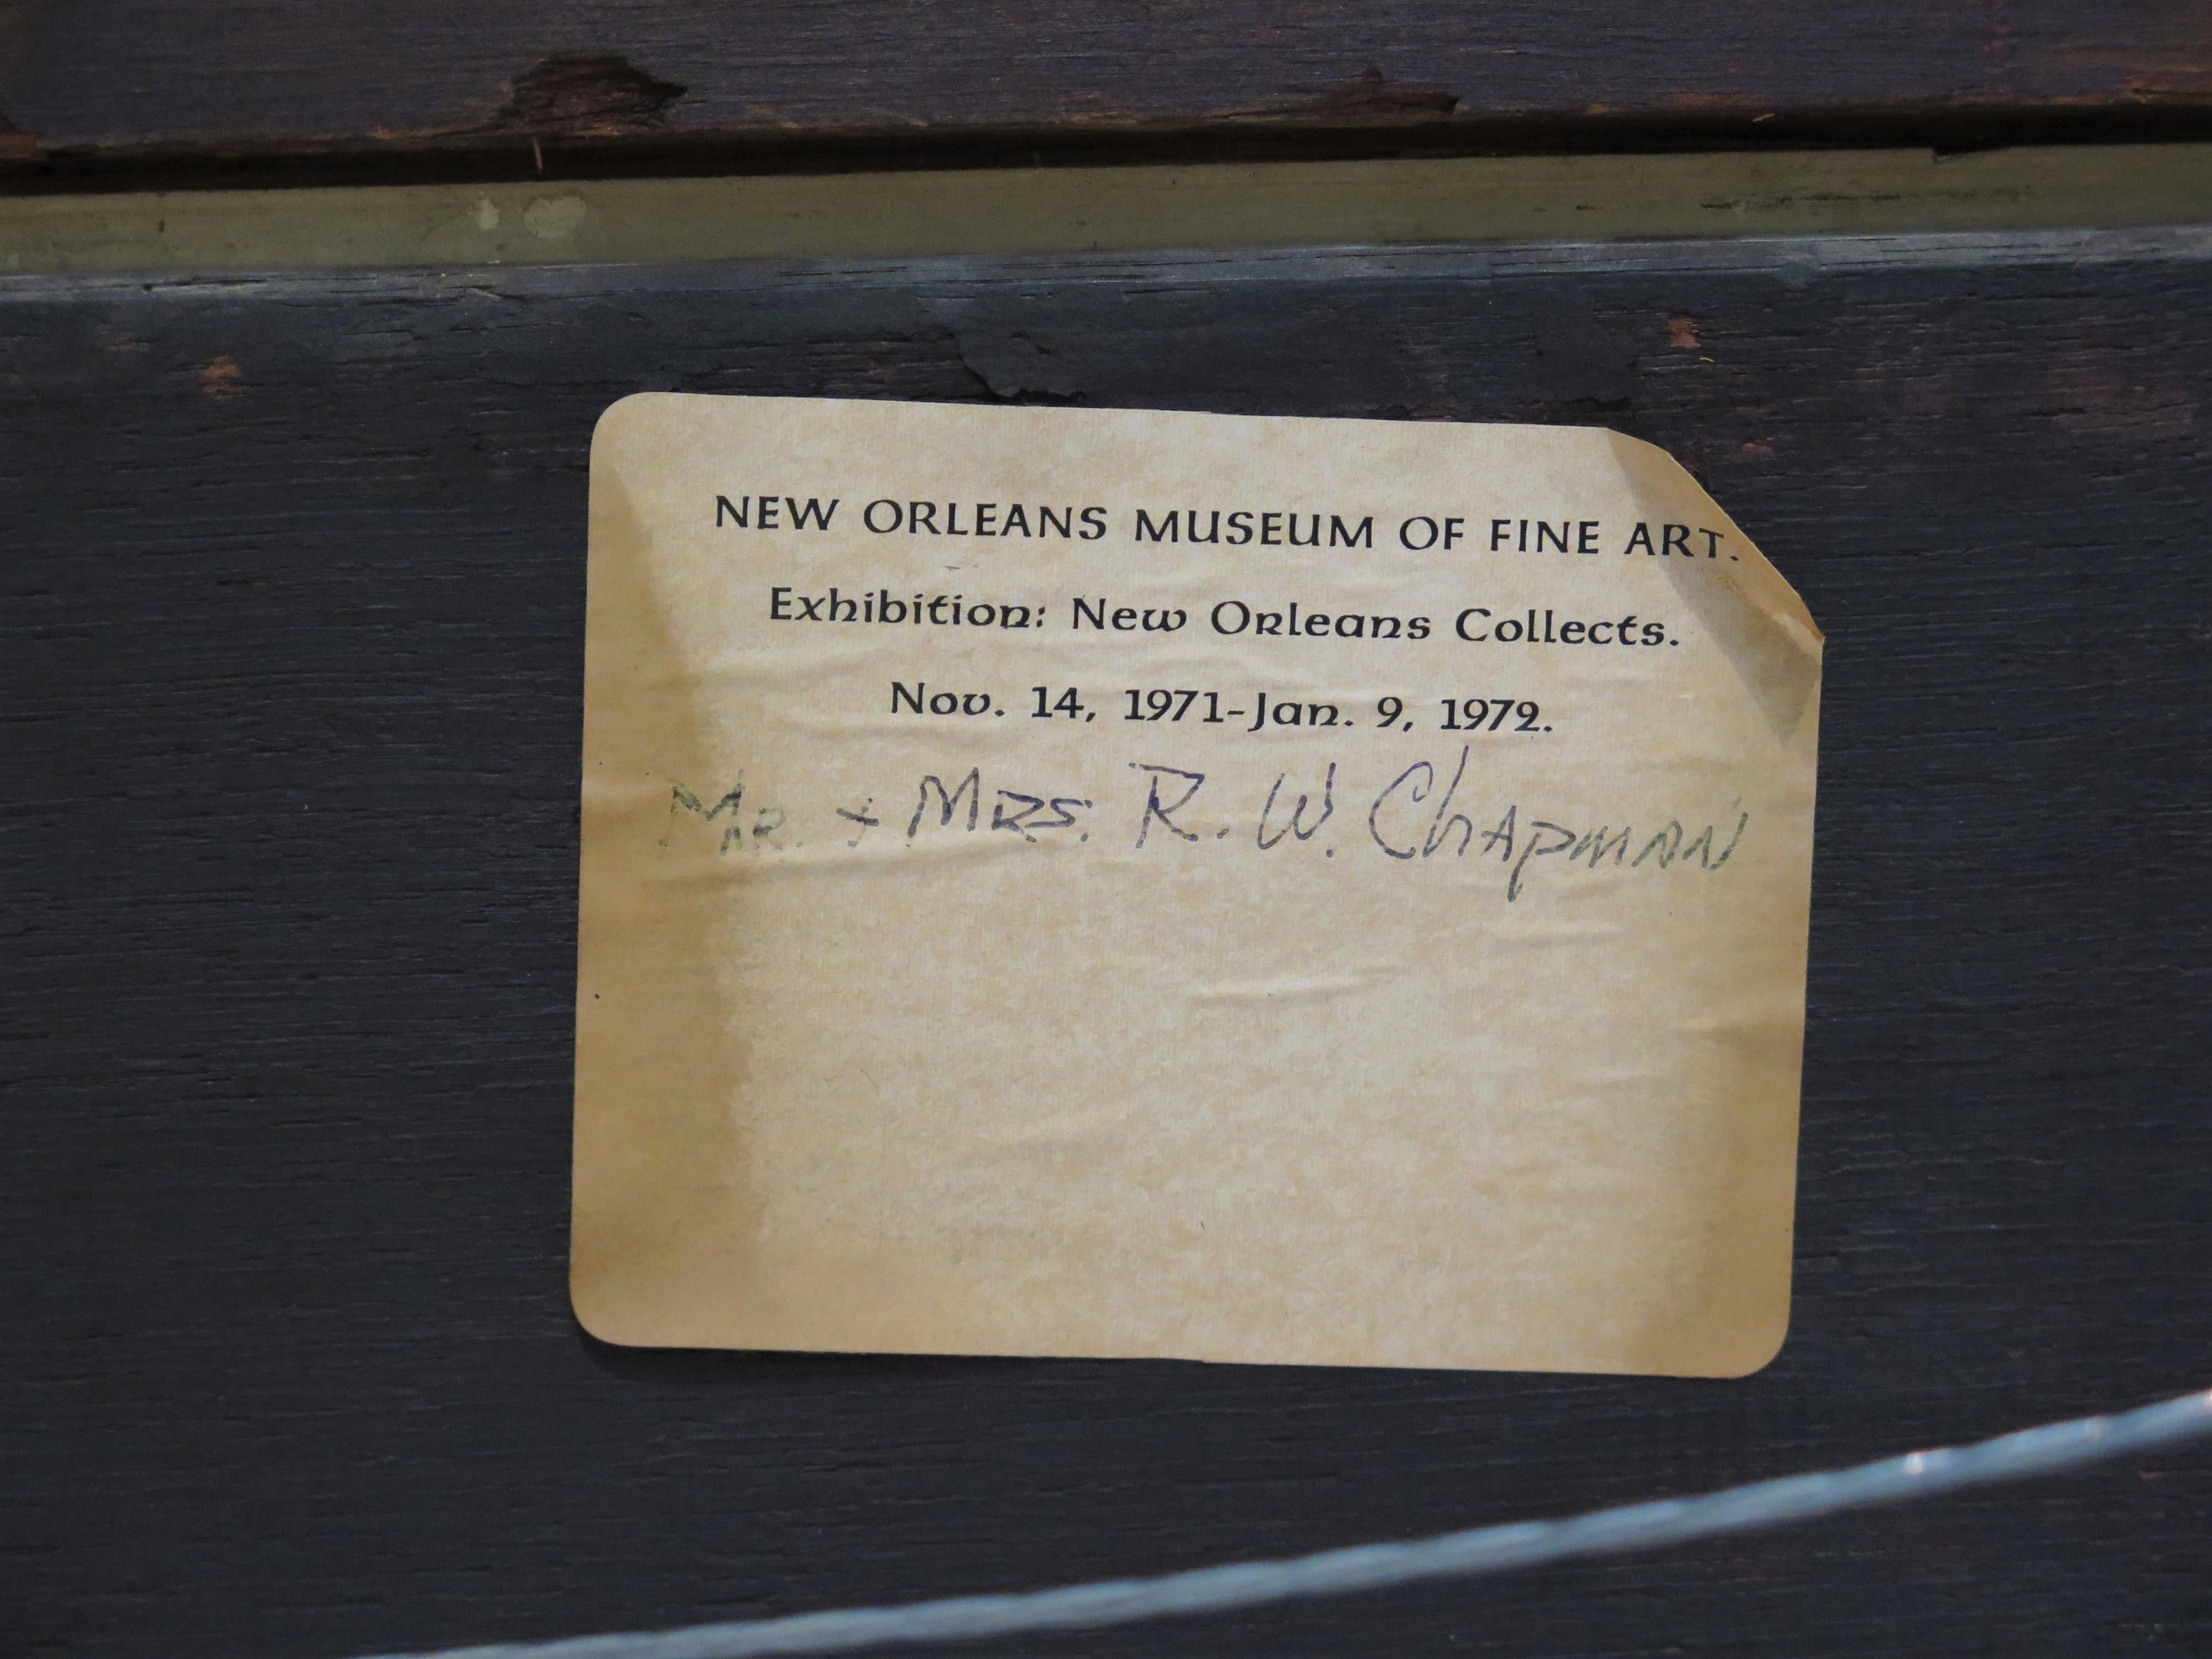 NEW ORLEANS MUSEUM OF FINE ART.
Exhibition: New Orleans Collects.
Nov. 14, 1971-Jan. 9, 1972.
Mr. + Mrs. R. W. Chapman